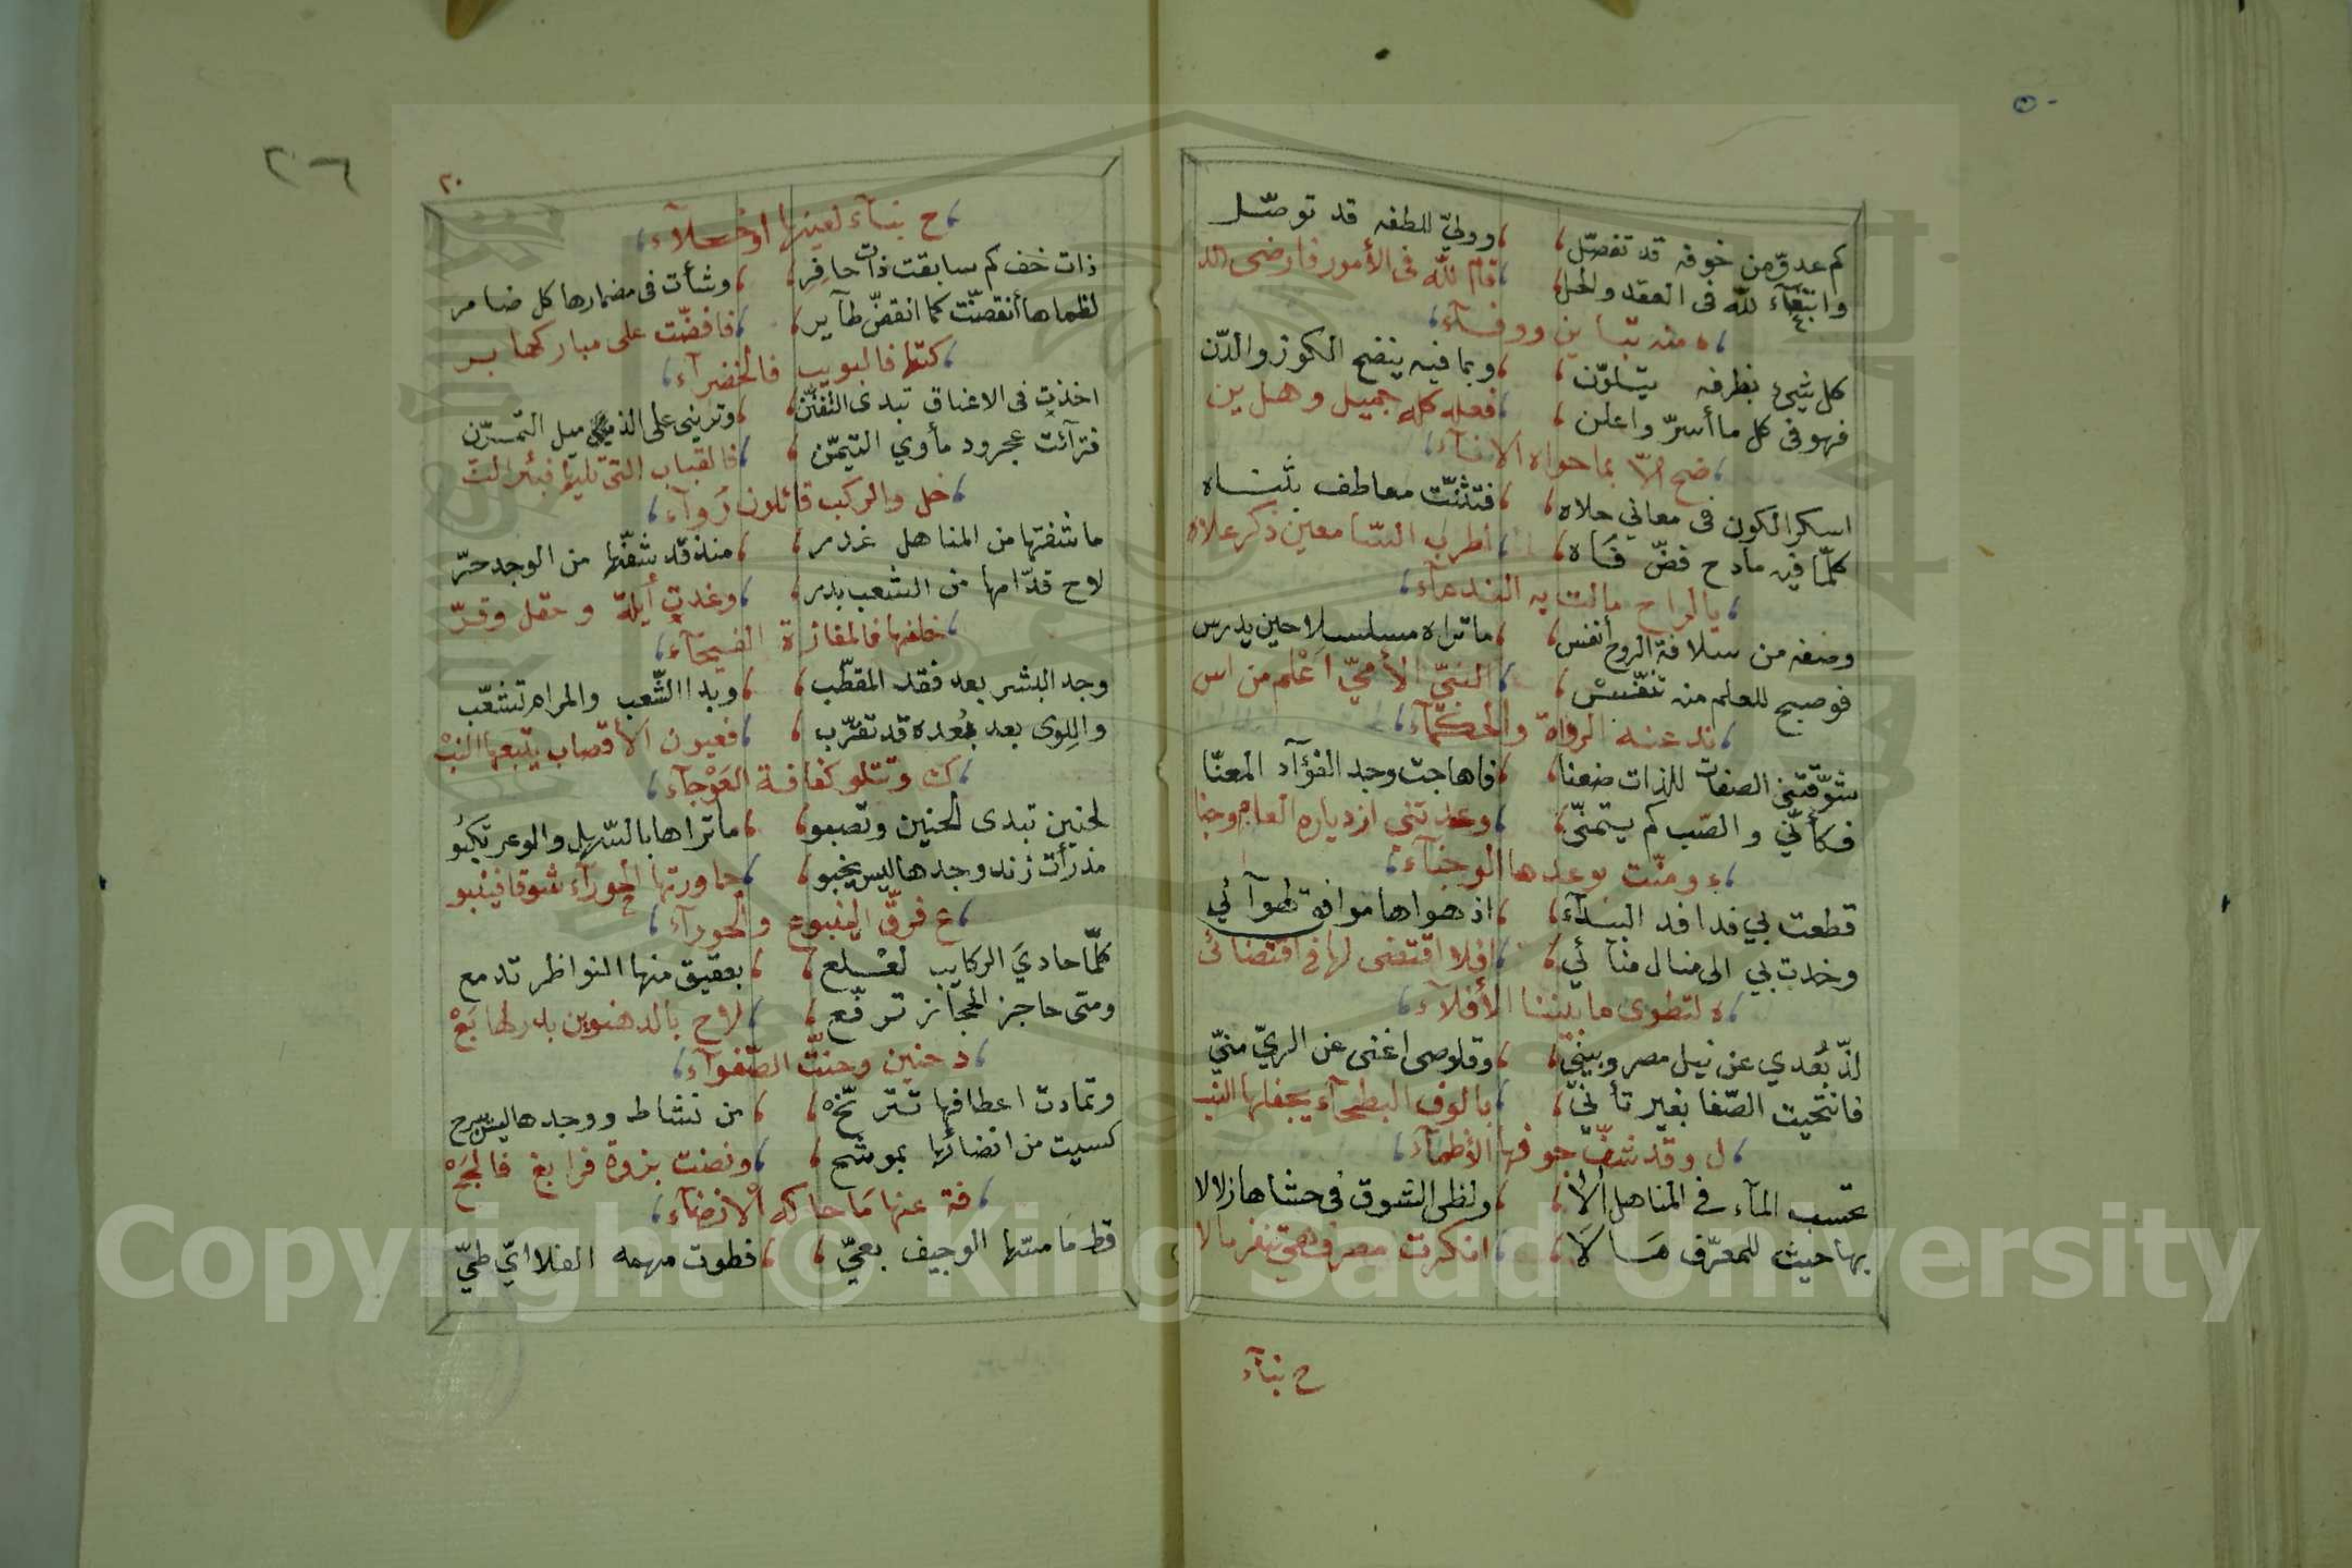 كم عدوّ من خوفه قد تفصّل ، وولىّ للطفه قد توصّل
وابتغآء للّه فى العقد والحل ، قام للّه فى الأمور فارضى الله
، ه منه تباين ووفآء ،
كل شيئ بظرفه يتلوّن ، وبما فيه ينضح الكوز والدّن
فهو فى كل ما أسرّ واعلن ، فعله كله جميل وهل ين
، ضح الاّ بما حواه الانآء ،
اسكر الكون فى معاني حلاه ، فتثنّت معاطف بثناه
كلّما فيه مادح فضّ فاه ، أطرب السّامعين ذكر علاه
، يا لراح مالت به الندمآء ،
وصفه من سلافة الروح أنفس ، ما تراه مسلسلا حين يدرس
فوصبح للعلم منه تنفّسْ ، النبىّ الأمىّ اعْلم من اس
، ند عنه الرواة والحكمآء ،
شوّقتنى الصفات للذات ضعنا ، فاهاجت وجد الفؤآد المعنّا
فكأنّي والصّب كم يتمنّى ، وعدتني ازدياره العام وجنا
، ء ومنّت بوعدها الوجنآء ،
قطعت بي فدافد البيدآء ، اذ هواها موافق لهوآئي
وخدت بي الى منال منآئي ، افلا اقتضى لها فى اقتضائى
، ه لتطوى ما بيننا الأفلآء ،
لذّ بُعدي عن نيل مصر وبينىّ ، وقلوصى اغنى عن الريّ منىّ
فانتحيت الصّفا بغير تأنىّ ، بالوف البطحآء يجفلها الني
، ل وقد شفّ جوفها الأظمآء ،
تحتسب المآء في المناهل ألا ، ولظى الشوق فى حشاها زلالا
بها حيث للمعرّف مَالا ، انكرت مصر فهى تنفر مالا
ح بنآء
٢٠
٢٦
، ح بنآء لعينها او خلآء ،
ذات خف كم سابقت ذات حافِر ، وشأت فى مضمارها كل ضامر
لظماها أنقضّت كما انقضّ طآير ، فافضّت على مباركها بر
، كتها فالبويب فالخضرآء ،
اخذت فى الاعناق تبدى التفنّن ، وترينى على الذميل التمرّن
فترآئت عجرود مأوي التيمّن ، فالقباب التى تليها فبئر الن
، خل والركب قائلون رُوآء ،
ما شفتها من المناهل غدر ، منذ قد شفّها من الوجد حرّ
لاح قدّامها من الشعب بدر ، وغدت أيلة وحقل وقرّ
، خلفها فالمغازة الفيحآء ،
وجد البشر بعد فقد المقطّب ، وبدا الشّعب والمرام تشعّب
واللِوى بعد بُعده قد تقرّب ، فعيون الأقصاب يتبعها النبْ
، ك وتتلو كفافة العَوْجآء ،
لحنين تبدى الحنين وتصبو ، ما تراها بالسّهل والوعر تكبُو
مذ رأت زند وجدها ليس يخبو ، حاورتها الحورآء شوقا فينبو
، ع فرقّ الينبوع والحورآء ،
كلّما حاديَ الركايب لعْلع ، بعقيق منها النواظر تدمع
ومتى حاجز الحجآز ترفّع ، لاح بالدهنوين بدر لها بَعْ
، د حنين وحنّت الصّفوآء ،
وتمادت اعطافها تترنّحْ ، من نشاط ووجدها ليس يبرح
كسيت من انضائها بموشح ، ونضت بزوة فرابغ فالجحْ
، فة عنها مَا حاكه الانضآء ،
قط مَا مسّها الوجيف بعىّ ، فطوت مهمه الفلا ايّ طىّ